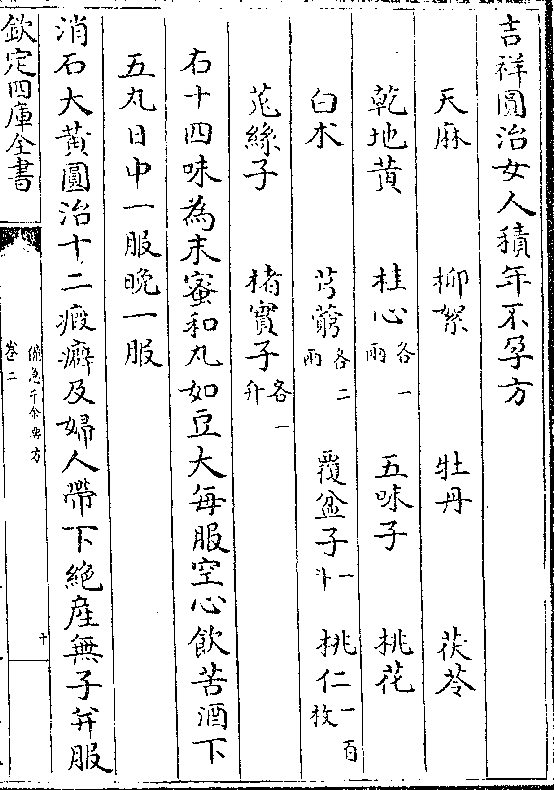 吉祥圓治女人積年不孕方
天麻 柳絮 牡丹 茯苓
乾地黄 桂心各一兩 五味子 桃花
白朮 芎藭各二兩 覆盆子一斗 桃仁一百枚
菟絲子 楮實子各一升
右十四味為末蜜和丸如豆大每服空心飲苦酒下
五丸日中一服晚一服
消石大黄圓治十二瘕癖及婦人帶下絶産無子并服
欽定四庫全書
備急千金要方
卷二
十